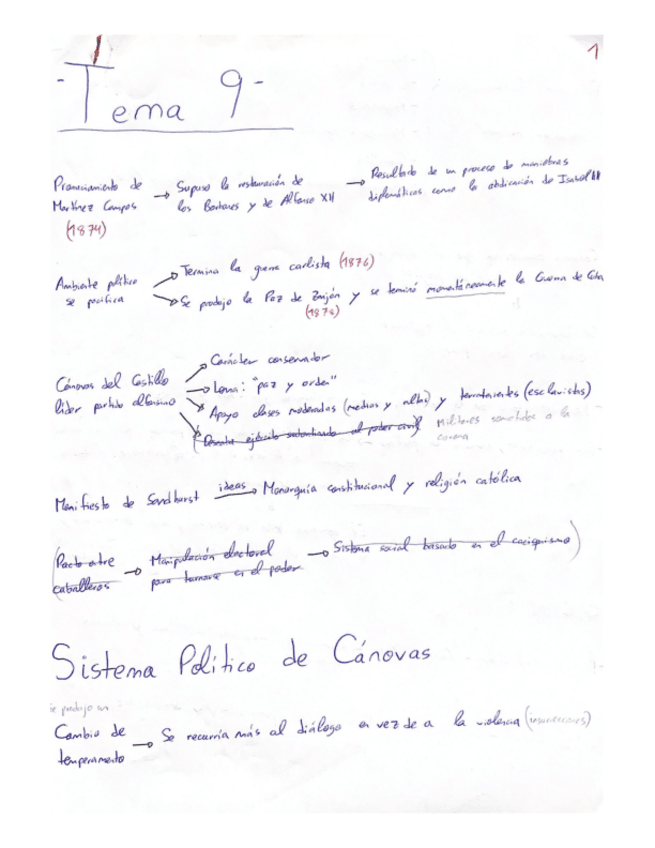 1
-Tema 9-
Pronunciamiento de
Martínez Campos
(1874)
→ Supuso la restauración de
los Borbones y de Alfonso XII
→ Resultado de un proceso de maniobras
diplomáticas como la abdicación de Isabel II
Ambiente político
se pacifica
→ Termina la guerra carlista (1876)
→ Se produjo la Paz de Zanjón y se terminó momentáneamente la Guerra de Cuba
(1878)
Cánovas del Castillo
líder partido alfonsino
→ Carácter conservador
→ Lema: "paz y orden"
→ Apoyo clases moderadas (medias y altas) y terratenientes (esclavistas)
ejército al poder civil) Militares sometidos a la
corona
Manifiesto de Sandhurst ideas → Monarquía constitucional y religión católica
(Pacto entre
caballeros
→ Manipulación electoral
para turnarse en el poder
→ Sistema social basado en el caciquismo)
Sistema Político de Cánovas
Se produjo un
Cambio de
temperamento
→ Se recurría más al diálogo en vez de a la violencia (insurrecciones)